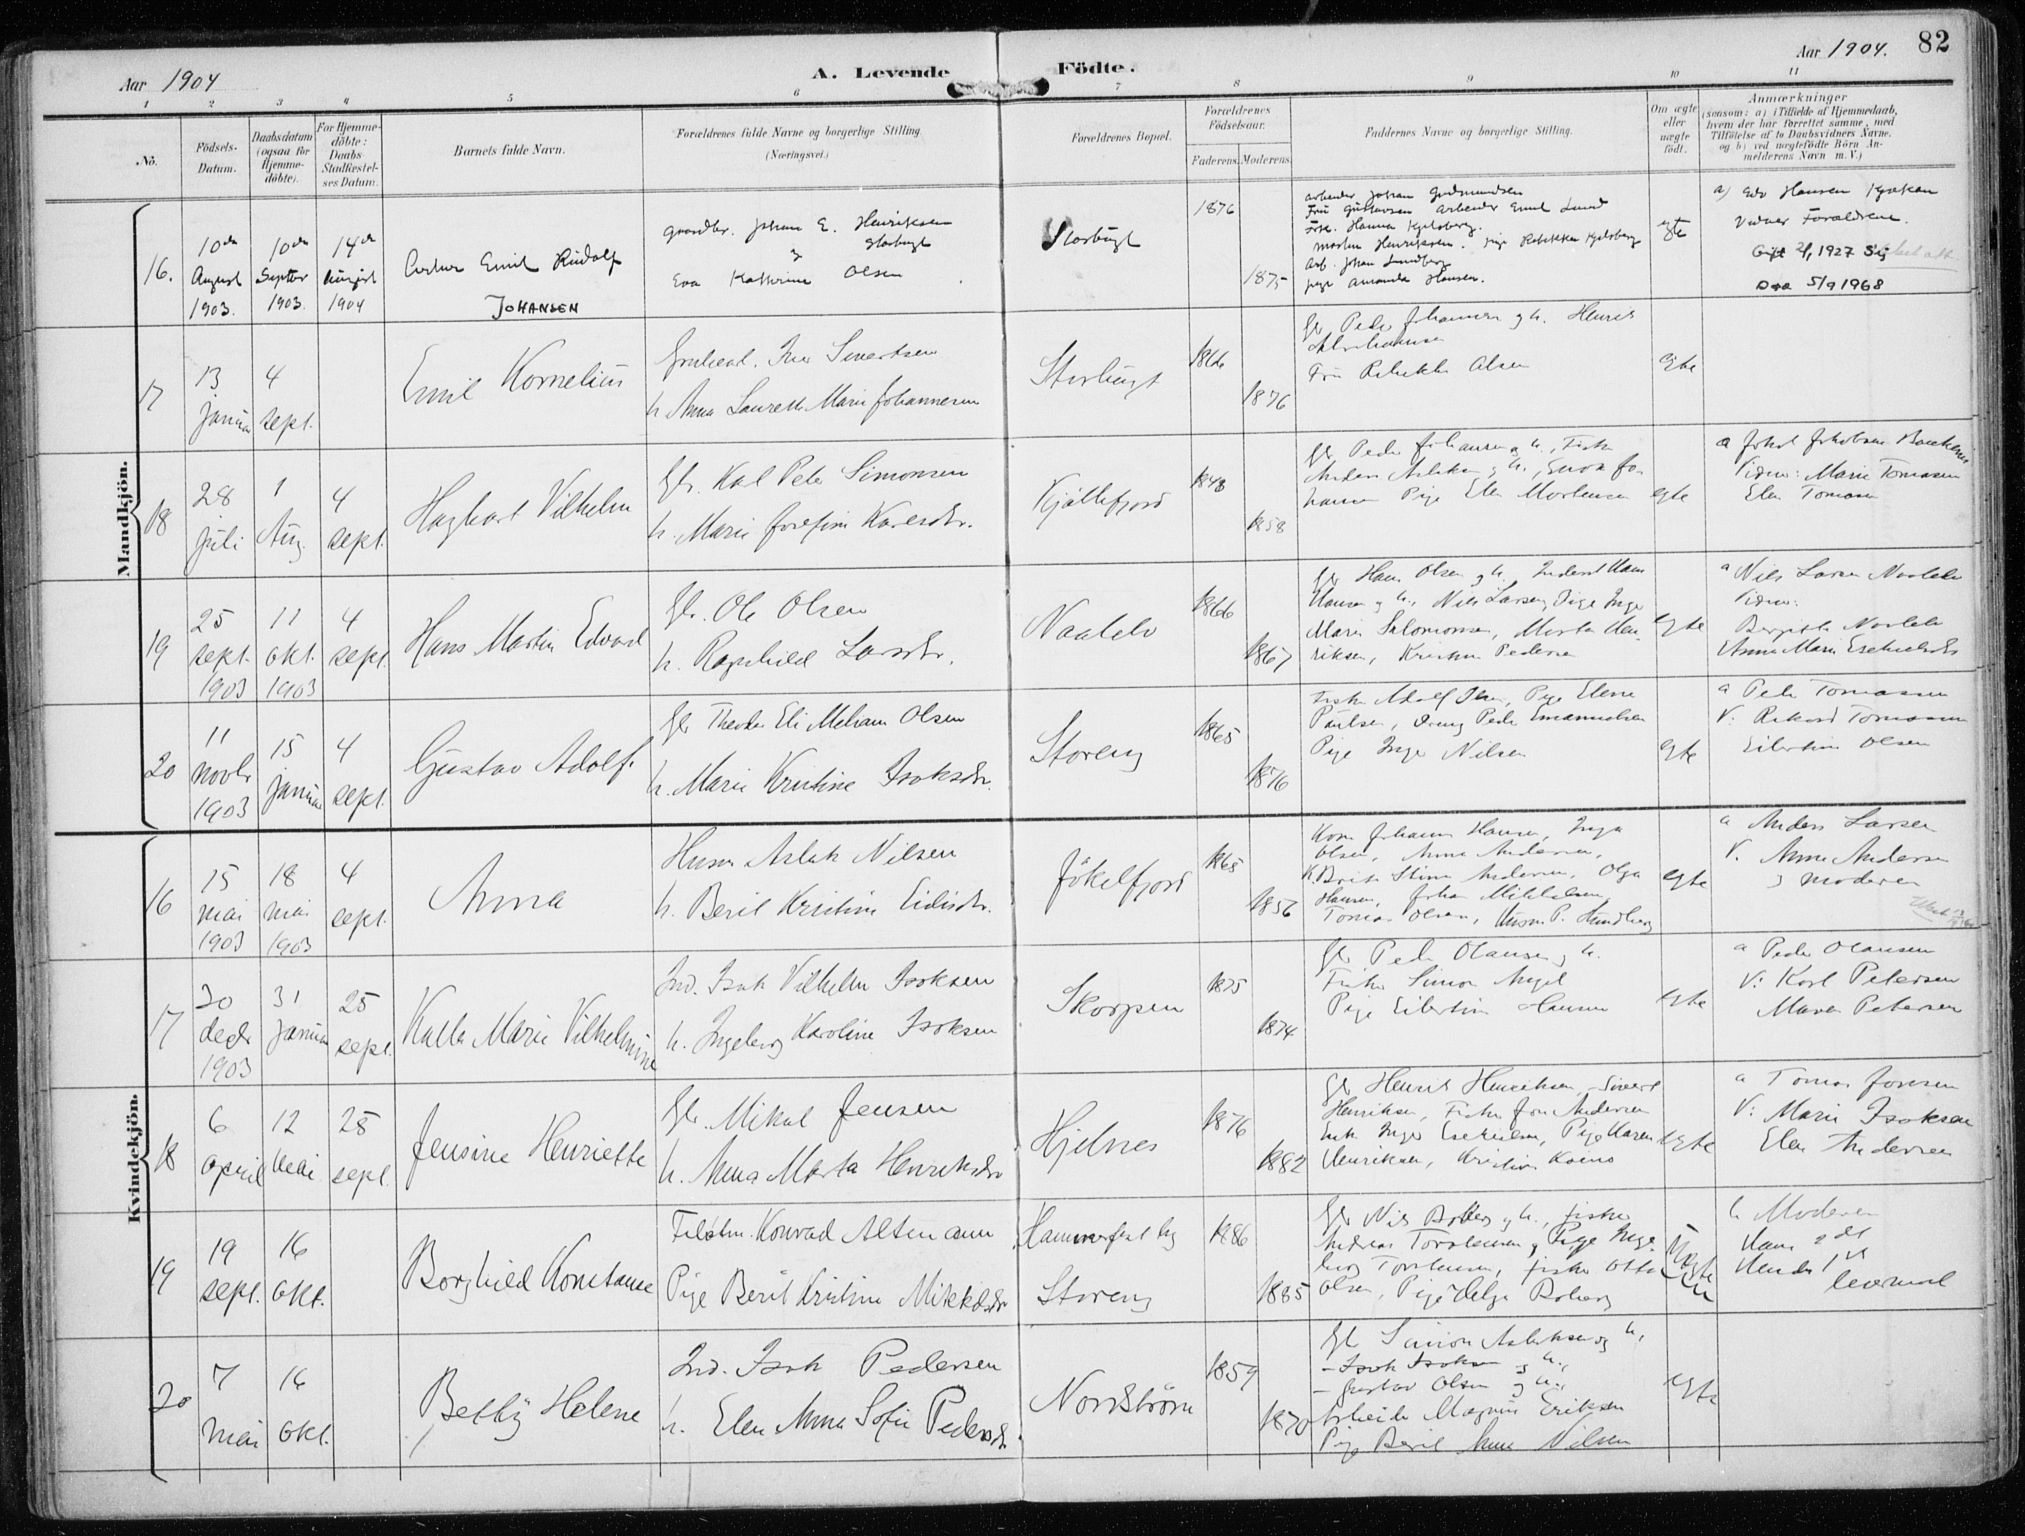 82
Aar 1904
A. Levende Födte.
Aar 1904.
1 2 3 4 5 6 7 8 9 10 11
No.
Födsels-Datum.
Daabsdatum (ogsaa for Hjemme-döbte).
For Hjemme-döbte: Daabs Stadfæstel-ses Datum.
Barnets fulde Navn.
Forældrenes fulde Navne og borgerlige Stilling.
(Næringsvei.)
Forældrenes Bopæl.
Forældrenes Födselsaar.
Faderens. Moderens.
Faddernes Navne og borgerlige Stilling.
Om ægte eller uægte födt.
Anmærkninger
(saasom: a) i Tilfælde af Hjemmedaab,
hvem der har forrettet samme, med
Tilföielse af to Daabsvidners Navne.
og b) ved uægtefödte Börn An-
melderens Navn m. V.)
Mandkjön.
16.
10de August 1903.
10de Septbr 1903.
14de August 1904
Emil Rudolf
JOHANSEN
Johan E. Henriksen
Storbugt
&
Eva Kathrine Olsen
Storbugt
1876
1875
arbeider Johan Gudmundsen
Fru Gustavsen arbeider Emil Lund
Frk. Hanna Kjelsberg.
Martin Henriksen. pige Rebekka Kjelsberg
Arb. Johan Lundberg
pige Amanda Hansen.
egte
a) Edv Hansen
Vidner Forældrene.
Gift 2/1 1927
Død 5/9 1968
17
13 januar
4 sept.
Emil Kornelius
Iver Sivertsen
h. Anna Laurette Marie Johannesen
Storbugt
1866
1876
Gbr Peder Johannesen og h. Henrik
Abrahamsen
Fru Rebekka Olsen
Egte
18
28 juli
1 Aug.
4 sept.
Hagbart Vilhelm
Gbr. Karl Peter Simonsen
h. Marie Josefine Karlsdtr.
Kjöllefjord
1848
1858
Gbr Peder Johansen og h., Fisker
Anders Aslaksen og h., Enok Jo-
hansen Pige Elen Mortensen
egte
a Jakob Jakobsen
Vidner: Marie Tomasen
Elen Tomasen
19
25 sept. 1903
11 okt. 1903
4 sept.
Hans Martin Edvard
Gbr. Ole Olsen
h. Ragnhild Larsdtr.
Naalelv
1866
1867
Gbr Hans Olsen og h. Inderst Hans
Hansen og h., Nils Larsen, Pige Inger
Marie Salomonsen, Morten Hen-
riksen, Pedersen
egte
a Nils Larsen Naalelv
Vidner:
Bergitte Naalelv
Anne Marie
20
11 novbr 1903
15 januar
4 sept.
Gustav Adolf.
Gbr Theodor Eli Meham Olsen
h. Marie Kristine Isaksdtr.
Storeng
1865
1876
Fisker Adolf Olsen, Pige Elene
Paulsen, Dreng Peder Emanuelsen
Pige Inger Nilsen
egte
a Peder Tomassen
V: Rikard Tomassen
Eilertine Olsen
Kvindekjön.
16
15 mai 1903
18 mai 1903
4 sept.
Anna
Husm Aslak Nilsen
h. Beret Kristine
Jökelfjord
1865
1856
Johannes Hansen, Inga
Olsen, Anne Andersen,
Stine Andersen, Olga
Hansen, Johan Mikkelsen
Tomas Olsen, Husm P. Hundberg
egte
a Anders Larsen
V. Anne Andersen
& moderen
17
20 decbr 1903
31 januar
25 sept.
Kalla Marie Vilhelmine
Ind. Isak Vilhelm Isaksen
h. Ingeborg Karoline Isaksen
Skorpen
1875
1874
Gbr Peder Olausen og h.
Fisker Simon Angel
Pige Eilertine Hansen
egte
a Peder Olausen
V: Karl Petersen
Maren Petersen
18
6 april
12 Mai
25 sept.
Jensine Henriette
Gbr. Mikal Jensen
h. Anna Marta Henriksdtr
Hjelnes
1876
1882
Gbr Henrik Henriksen, Sivert
Henriksen, Fisker Jon Andersen
Enke Inger Esekielsen, Pige Maren
Henriksen, Kristian
egte
a Tomas Jonsen
V: Marie Isaksen
Elen Andersen
19
19 sept.
16 okt.
Borghild Konstanse
Konrad Altemann
Pige Berit Kristine Mikkelsdtr
Hammerfest by
Storeng
1886
1885
Gbr Nils Boberg og h., fisker
Andreas Torstensen, Pige Inge-
borg Torstensen, fisker Otto
Olsen, Pige Helga Boberg
Uegte
b Moderen
Hans 2det
Hendes 1ste
leiermaal
20
7 mai
16 okt.
Betty Helene
Ind. Isak Pedersen
h. Elen Anna Sofie Pedersdtr.
Nordström
1859
1870
Gbr Simon Aslaksen og h.,
– Isak Isaksen og h.,
– Gustav Olsen og h.,
Arbeider Magnus Eriksen
Pige Beret Anne Nilsen
egte